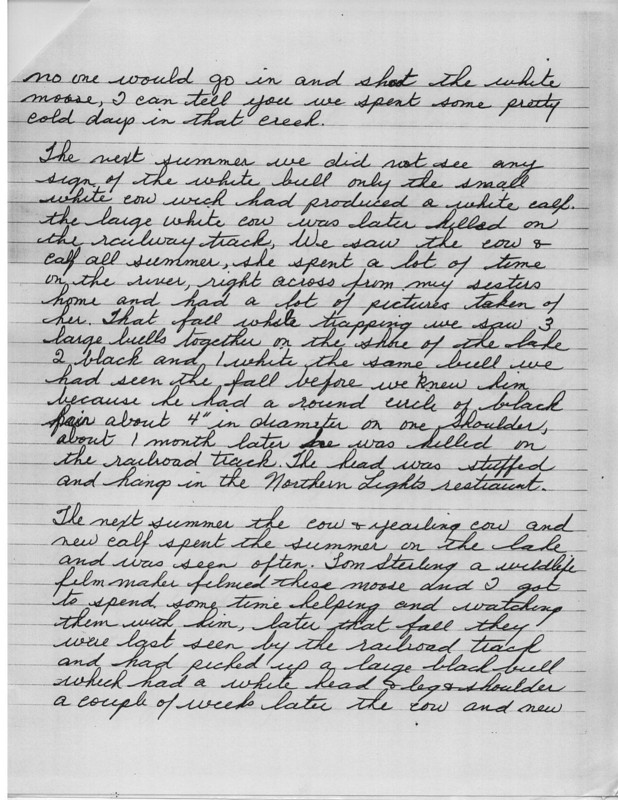 no one would go in and shoot the white
moose, I can tell you we spent some pretty
cold days in that creek.
The next summer we did not see any
sign of the white bull only the small
white cow wich had produced a white calf.
the large white cow was later killed on
the railway track, We saw the cow &
calf all summer, she spent a lot of time
on the river, right across from my sisters
home and had a lot of pictures taken of
her. That fall while trapping we saw 3
large bulls together on the shore of the lake
2 black and 1 white the same bull we
had seen the fall before we knew him
because he had a round circle of black
hair about 4" in diameter on one shoulder,
about 1 month later he was killed on
the railroad track. The head was stuffed
and hangs in the Northern Lights restraunt.
The next summer the cow & yearling cow and
new calf spent the summer on the lake
and was seen often. Tom Sterling a wildlife
film maker filmed these moose and I got
to spend some time helping and watching
them with him, later that fall they
were last seen by the railroad track
and had picked up a large black bull
which had a white head & leg & shoulder
a couple of weeks later the cow and new